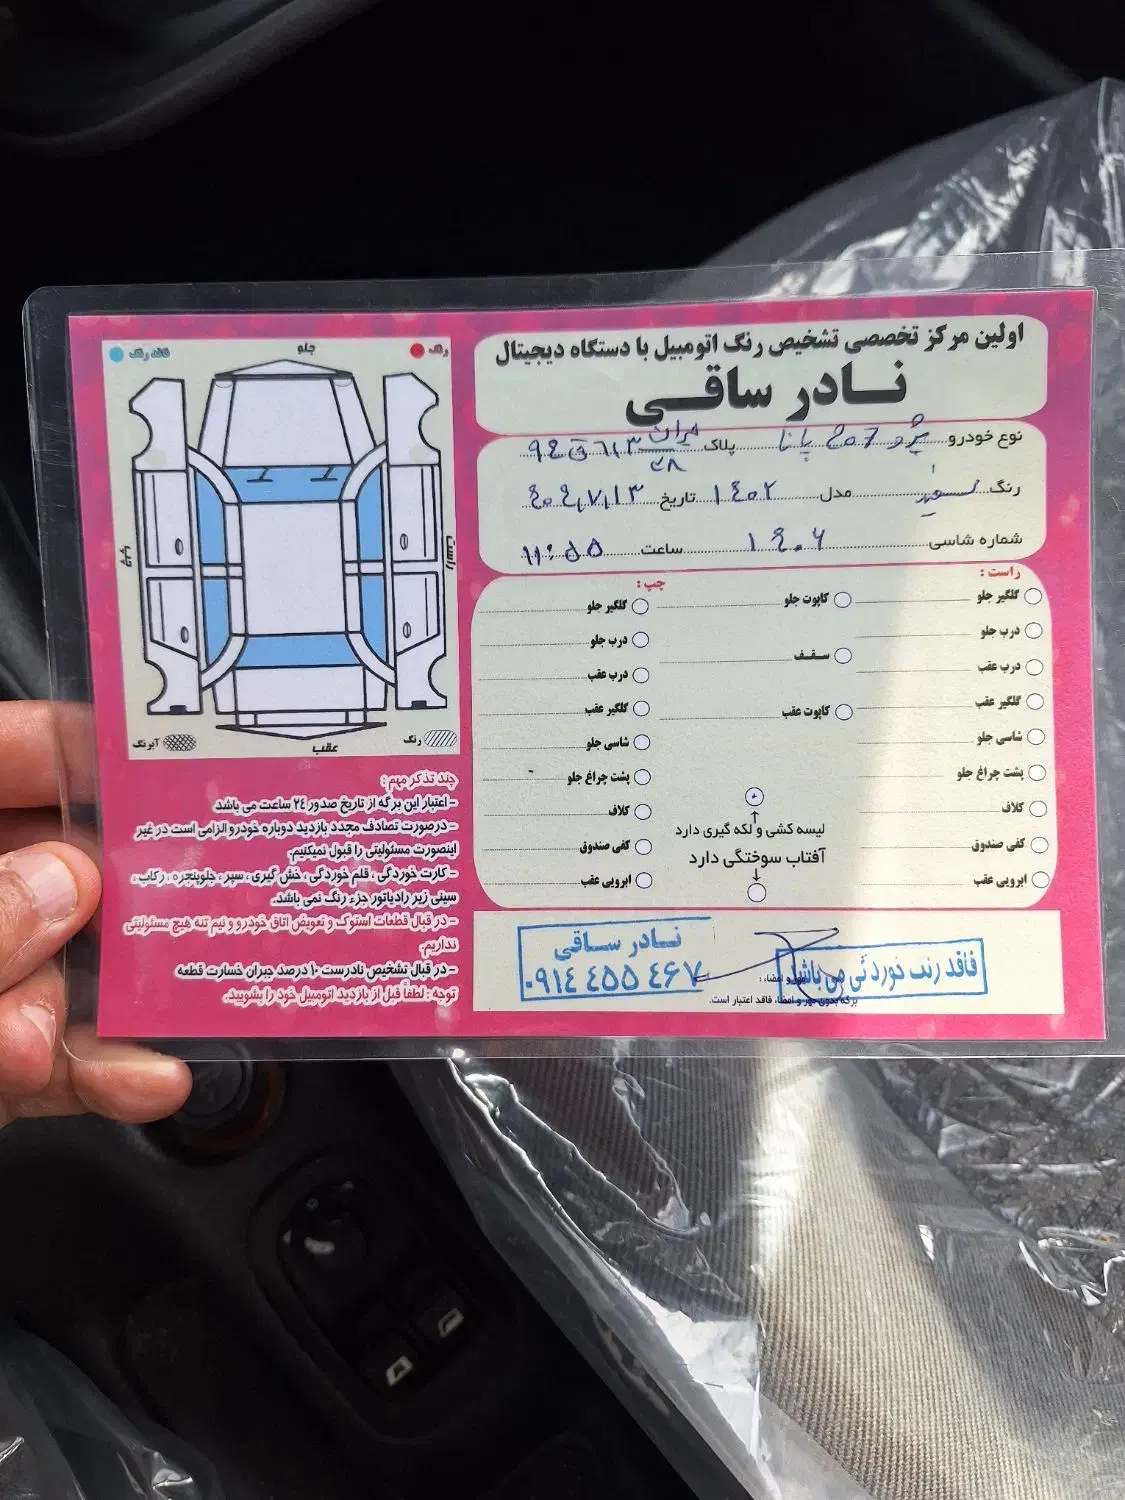 اولین مرکز تخصصی تشخیص رنگ اتومبیل با دستگاه دیجیتال
نادر ساقی
نوع خودرو پژو 207 پانا پلاک ایران
رنگ سفید مدل ۱۴۰۲ تاریخ ۴۰۴,۷,۱۳
شماره شاسی ۱۴۰۶ ساعت ۱۱:۵۵
راست :
گلگیر جلو
درب جلو
درب عقب
گلگیر عقب
شاسی جلو
پشت چراغ جلو
کلاف
کفی صندوق
ابرویی عقب
کاپوت جلو
سقف
کاپوت عقب
لیسه کشی و لکه گیری دارد
آفتاب سوختگی دارد
چپ :
گلگیر جلو
درب جلو
درب عقب
گلگیر عقب
شاسی جلو
پشت چراغ جلو
کلاف
کفی صندوق
ابرویی عقب
فاقد رنگ خوردگی می باشد
مهر و امضاء :
برگه بدون مهر و امضاء، فاقد اعتبار است.
نادر ساقی
۰۹۱۴ ۴۵۵ ۴۶۷
رنگ
فاقد رنگ
جلو
راست
چپ
عقب
رنگ
آبرنگ
چند تذکر مهم :
- اعتبار این برگه از تاریخ صدور ۲۴ ساعت می باشد
- درصورت تصادف مجدد بازدید دوباره خودرو الزامی است در غیر
اینصورت مسئولیتی را قبول نمیکنیم.
- کارت خوردگی ، قلم خوردگی، خش گیری ، سپر ، جلوپنجره ، رکاب ،
سینی زیر رادیاتور جزء رنگ نمی باشد.
- در قبال قطعات استوک و تعویض اتاق خودرو و نیم تنه هیچ مسئولیتی
نداریم.
- در قبال تشخیص نادرست ۱۰ درصد جبران خسارت قطعه
توجه : لطفاً قبل از بازدید اتومبیل خود را بشویید.